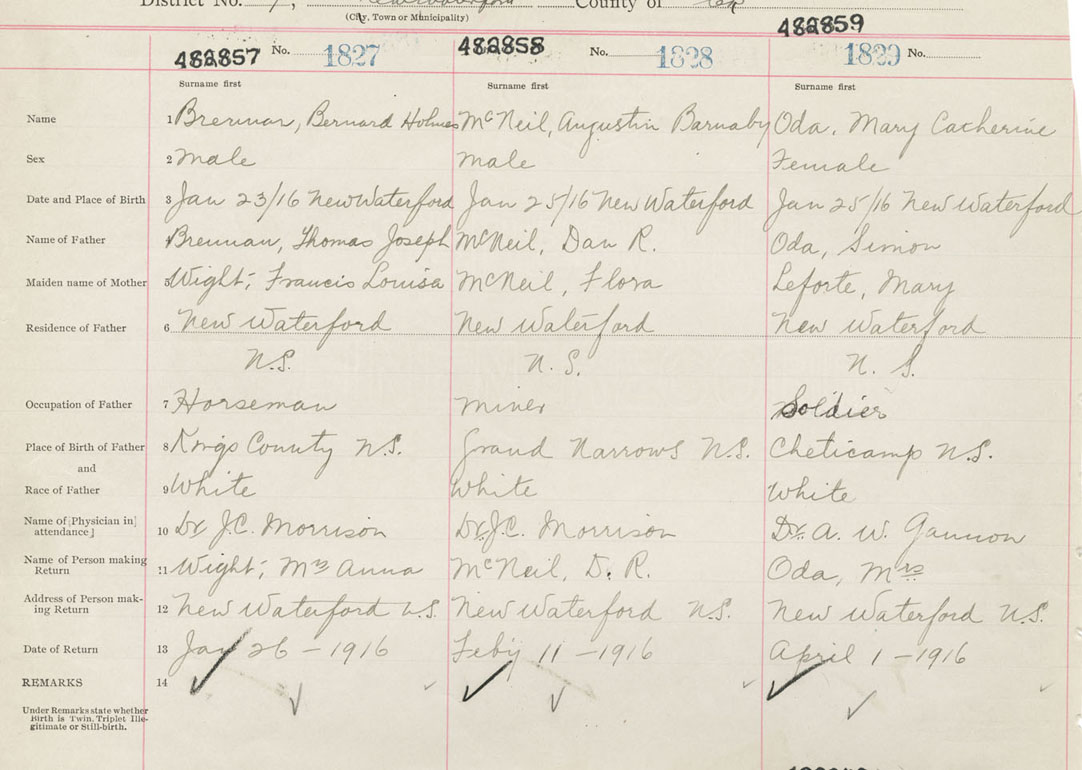 District No. 7, New Waterford County of
(City, Town or Municipality)
482857 No. 1827 482858 No. 1828 482859 1829 No.
Surname first Surname first Surname first
Name 1 Brennan, Bernard Holmes McNeil, Augustin Barnaby Oda, Mary Catherine
Sex 2 male male Female
Date and Place of Birth 3 Jan 23/16 New Waterford Jan 25/16 New Waterford Jan 25/16 New Waterford
Name of Father 4 Brennan, Thomas Joseph McNeil, Dan R. Oda, Simon
Maiden name of Mother 5 Wight, Francis Louisa McNeil, Flora Leforte, Mary
Residence of Father 6 New Waterford New Waterford New Waterford
N.S. N.S. N.S.
Occupation of Father 7 Horseman miner Soldier
Place of Birth of Father 8 Kings County N.S. Grand Narrows N.S. Cheticamp N.S.
and
Race of Father 9 White White White
Name of [Physician in
attendance] 10 Dr. J.C. Morrison Dr. J.C. Morrison Dr. A. W. Gannon
Name of Person making
Return 11 Wight, Mrs Anna McNeil, D. R. Oda, Mrs
Address of Person mak-
ing Return 12 New Waterford N.S. New Waterford N.S. New Waterford N.S.
Date of Return 13 Jan 26 - 1916 Feby 11 - 1916 April 1 - 1916
REMARKS 14
Under Remarks state whether
Birth is Twin, Triplet Ille-
gitimate or Still-birth.